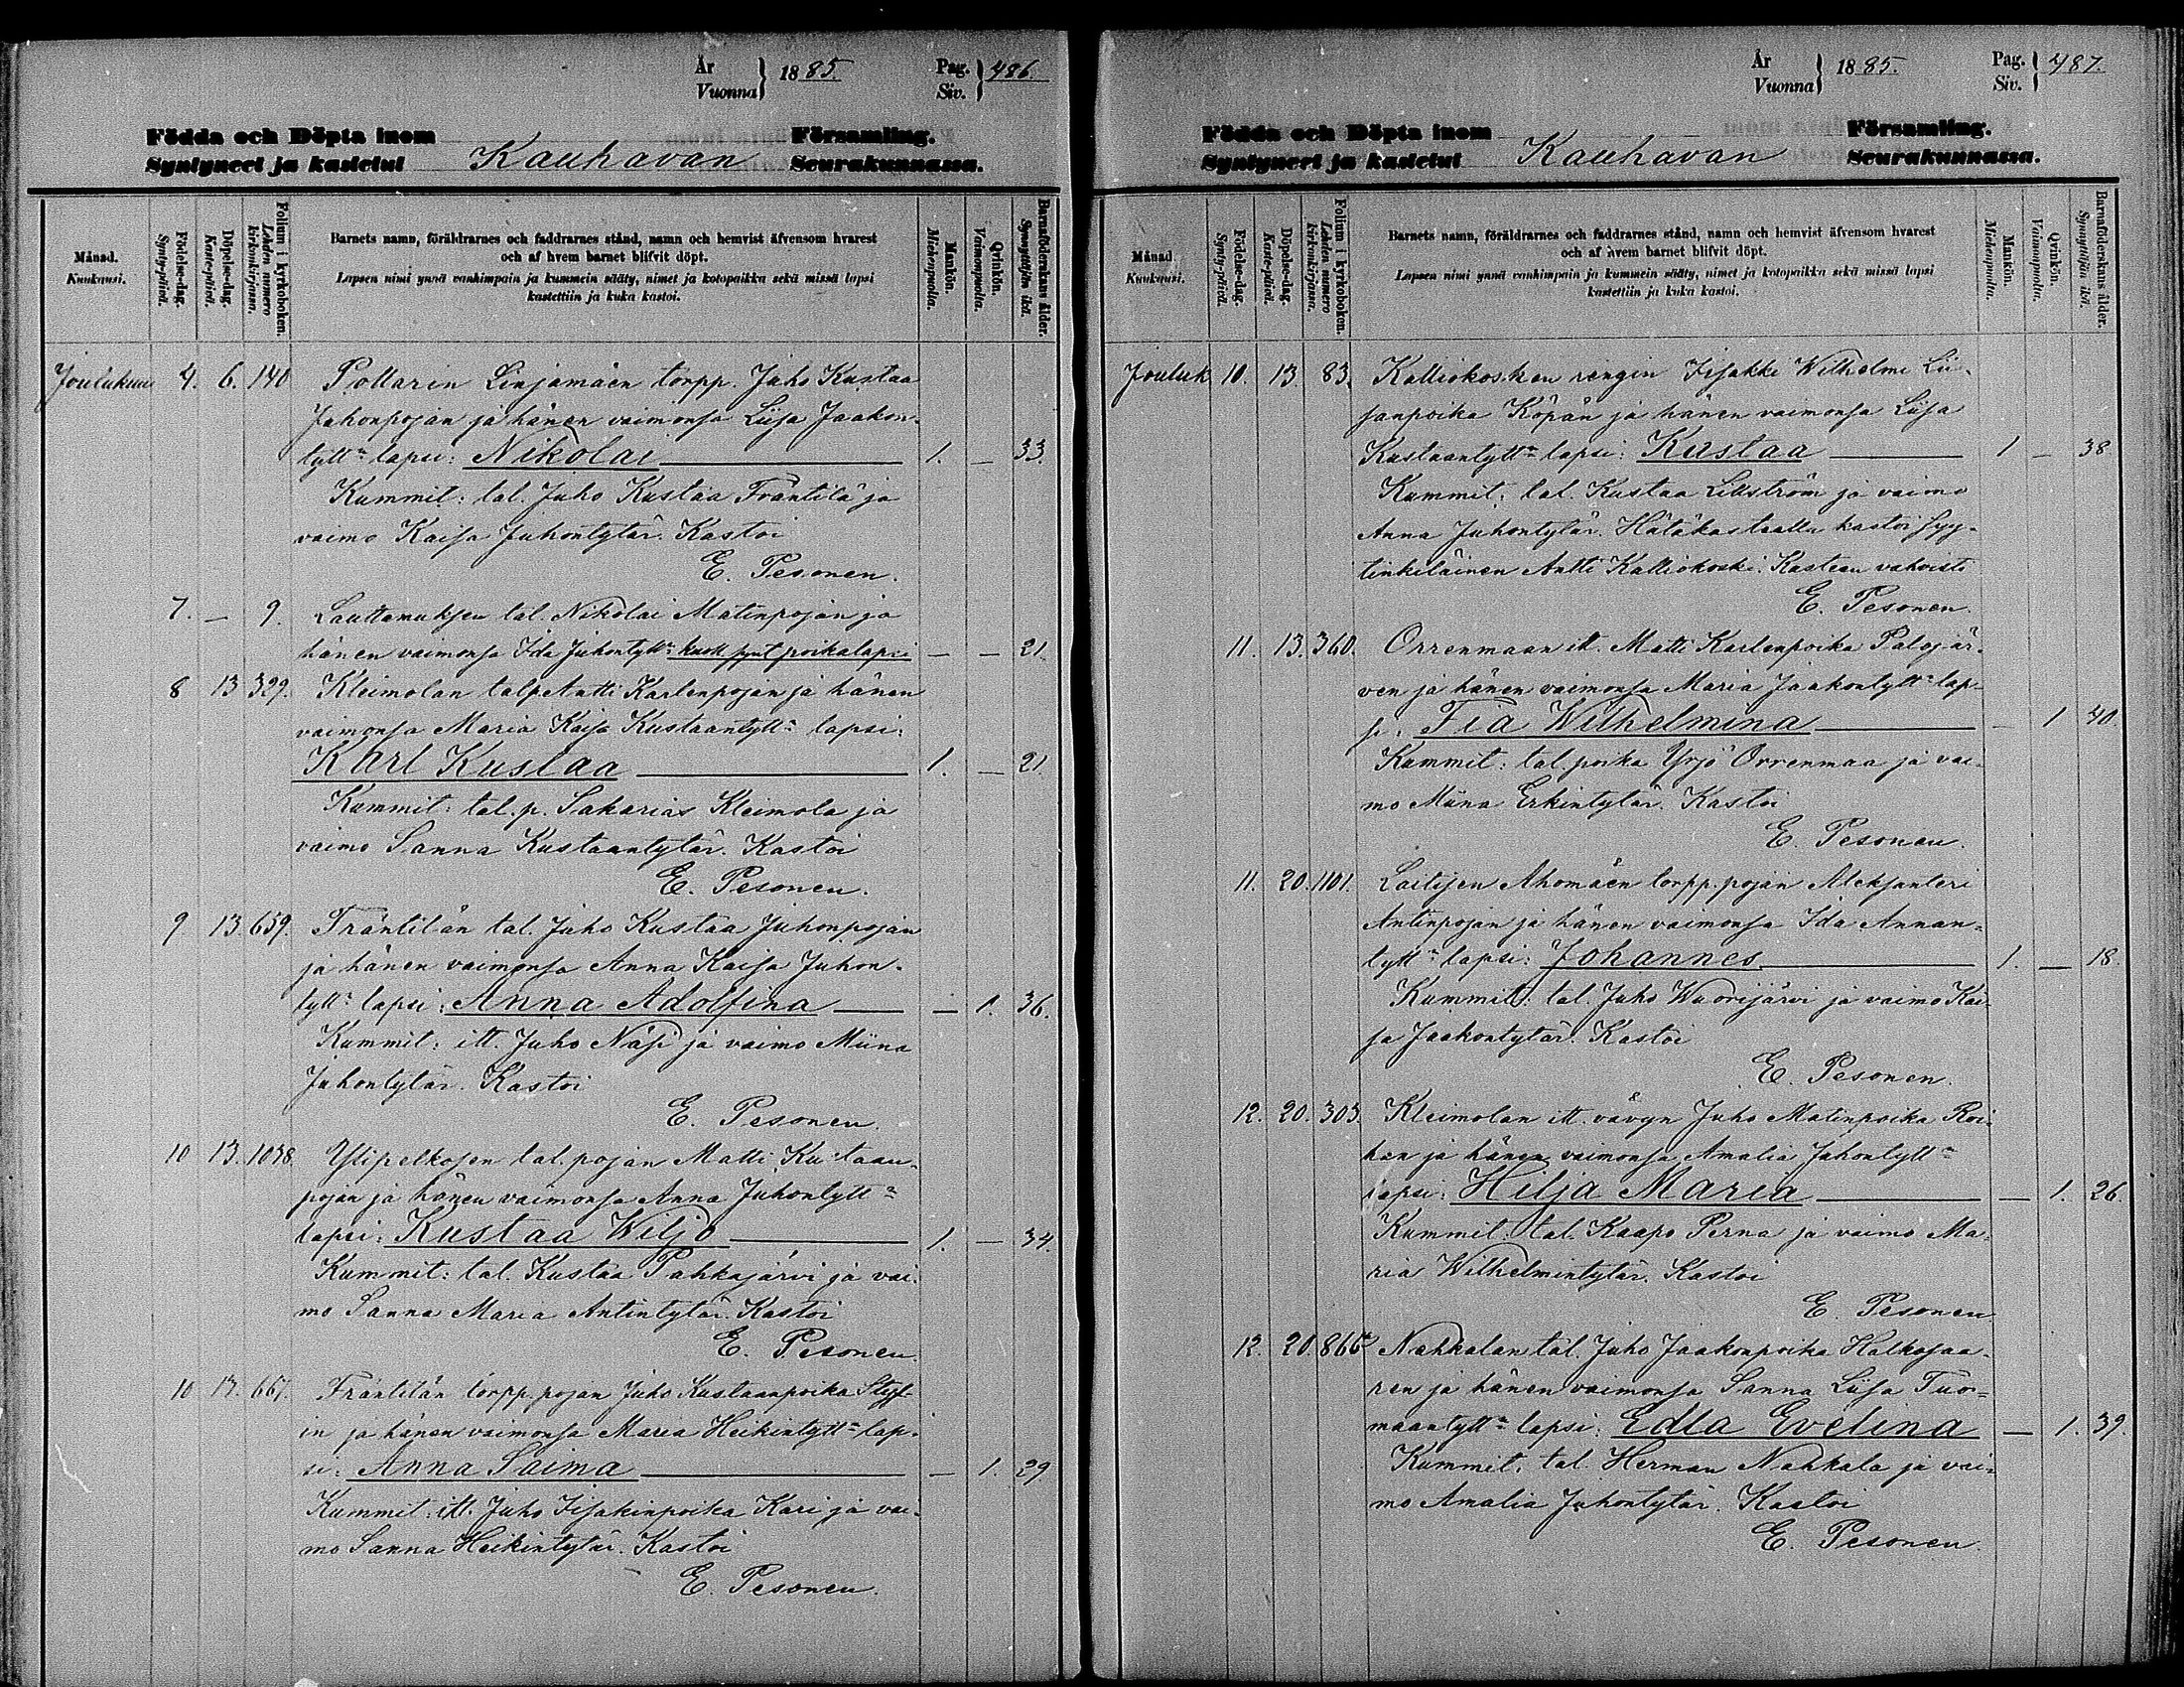 År
Vuonna } 1885.
Pag.
Siv. } 486.
Födda och Döpta inom Församling.
Syntyneet ja kastetut Kauhavan Seurakunnassa.
Månad.
Kuukausi.
Födelse-dag.
Synty-päivä.
Döpelse-dag.
Kaste-päivä.
Folium i kyrkoboken.
Lehden numero kirkonkirjassa.
Barnets namn, föräldrarnes och faddrarnes stånd, namn och hemvist äfvensom hvarest
och af hvem barnet blifvit döpt.
Lapsen nimi ynnä vanhimpain ja kummein sääty, nimet ja kotopaikka sekä missä lapsi
kastettiin ja kuka kastoi.
Mankön.
Miehenpuolta.
Qvinkön.
Vaimonpuolta.
Barnaföderskans ålder.
Synnyttäjän ikä.
Joulukuu 4. 6. 140 Pollarin Linjamäen torpp. Juho Kustaa
Juhonpojan ja hänen vaimonsa Liisa Jaakon-
tytt:n lapsi: Nikolai 1. — 33.
Kummit: tal. Juho Kustaa Fräntilä ja
vaimo Kaisa Juhontytär. Kastoi
E. Pesonen.
7. — 9. Lauttamuksen tal. Nikolai Matinpojan ja
hänen vaimonsa Ida Juhontytt:n kuoll. synt. poikalapsi — — 21.
8 13 329. Kleimolan talp. Antti Karlenpojan ja hänen
vaimonsa Maria Kaisa Kustaantytt:n lapsi:
Karl Kustaa 1. — 21.
Kummit: tal. p. Sakarias Kleimola ja
vaimo Sanna Kustaantytär. Kastoi
E. Pesonen.
9 13. 659. Fräntilän tal. Juho Kustaa Juhonpojan
ja hänen vaimonsa Anna Kaisa Juhon-
tytt:n lapsi: Anna Adolfina — 1. 36.
Kummit: itt. Juho Näsi ja vaimo Miina
Juhontytär. Kastoi
E. Pesonen.
10 13. 1038. Ylipelkosen tal. pojan Matti Kustaan-
pojan ja hänen vaimonsa Anna Juhontytt:n
lapsi: Kustaa Wiljo 1. — 34.
Kummit: tal. Kustaa Pahkajärvi ja vai-
mo Sanna Maria Antintytär. Kastoi
E. Pesonen.
10 13. 667. Fräntilän torpp. pojan Juho Kustaanpoika
in ja hänen vaimonsa Maria Heikintytt:n lap-
si: Anna Saima — 1. 29
Kummit: itt. Juho Iisakinpoika Kari ja vai-
mo Sanna Heikintytär. Kastoi
E. Pesonen.
År
Vuonna } 1885.
Pag.
Siv. } 487.
Födda och Döpta inom Församling.
Syntyneet ja kastetut Kauhavan Seurakunnassa.
Månad
Kuukausi.
Födelse-dag.
Synty-päivä.
Döpelse-dag.
Kaste-päivä.
Folium i kyrkoboken.
Lehden numero kirkonkirjassa.
Barnets namn, föräldrarnes och faddrarnes stånd, namn och hemvist äfvensom hvarest
och af hvem barnet blifvit döpt.
Lapsen nimi ynnä vanhimpain ja kummein sääty, nimet ja kotopaikka sekä missä lapsi
kastettiin ja kuka kastoi.
Mankön.
Miehenpuolta.
Qvinkön.
Vaimonpuolta.
Barnaföderskans ålder.
Synnyttäjän ikä.
Jouluk 10. 13. 83. Kalliokosken rengin Iisakki Wilhelmi Lii-
sanpoikaKöpän ja hänen vaimonsa Liisa
Kustaantytt:n lapsi: Kustaa 1 — 38
Kummit: tal. Kustaa Lillström ja vaimo
Anna Juhontytär. Hätäkasteella kastoi syy-
tinkiläinen Antti Kalliokoski. Kasteen vahvisti
E. Pesonen.
11. 13. 360. Orrenmaan itt. Matti Karlenpoika Palojär-
ven ja hänen vaimonsa Maria Jaakontytt:n lap-
si: Fia Wilhelmina — 1 40.
Kummit: tal. poika Yrjö Orrenmaa ja vai-
mo Miina Erkintytär. Kastoi
E. Pesonen.
11. 20. 1101. Laitisen Ahomäen torpp. pojan Aleksanteri
Antinpojan ja hänen vaimonsa Ida Annan-
tytt:n lapsi: Johannes 1. — 18.
Kummit: tal. Juho Wuorijärvi ja vaimo Kai-
sa Jaakontytär. Kastoi
E. Pesonen.
12. 20. 303. Kleimolan itt. vävyn Juho Matinpoika Roi-
han ja hänen vaimonsa Amalia Juhontytt:n
lapsi: Hilja Maria — 1. 26.
Kummit: tal. Kaapo Perna ja vaimo Ma-
ria Wilhelmintytär. Kastoi
E. Pesonen
12. 20. 866 Nahkalan tal. Juho Jaakonpoika Halkosaa-
ren ja hänen vaimonsa Sanna Liisa Tuo-
maantytt:n lapsi: Edla Evelina — 1. 39.
Kummit: tal. Herman Nahkala ja vai-
mo Amalia Juhontytär. Kastoi
E. Pesonen.